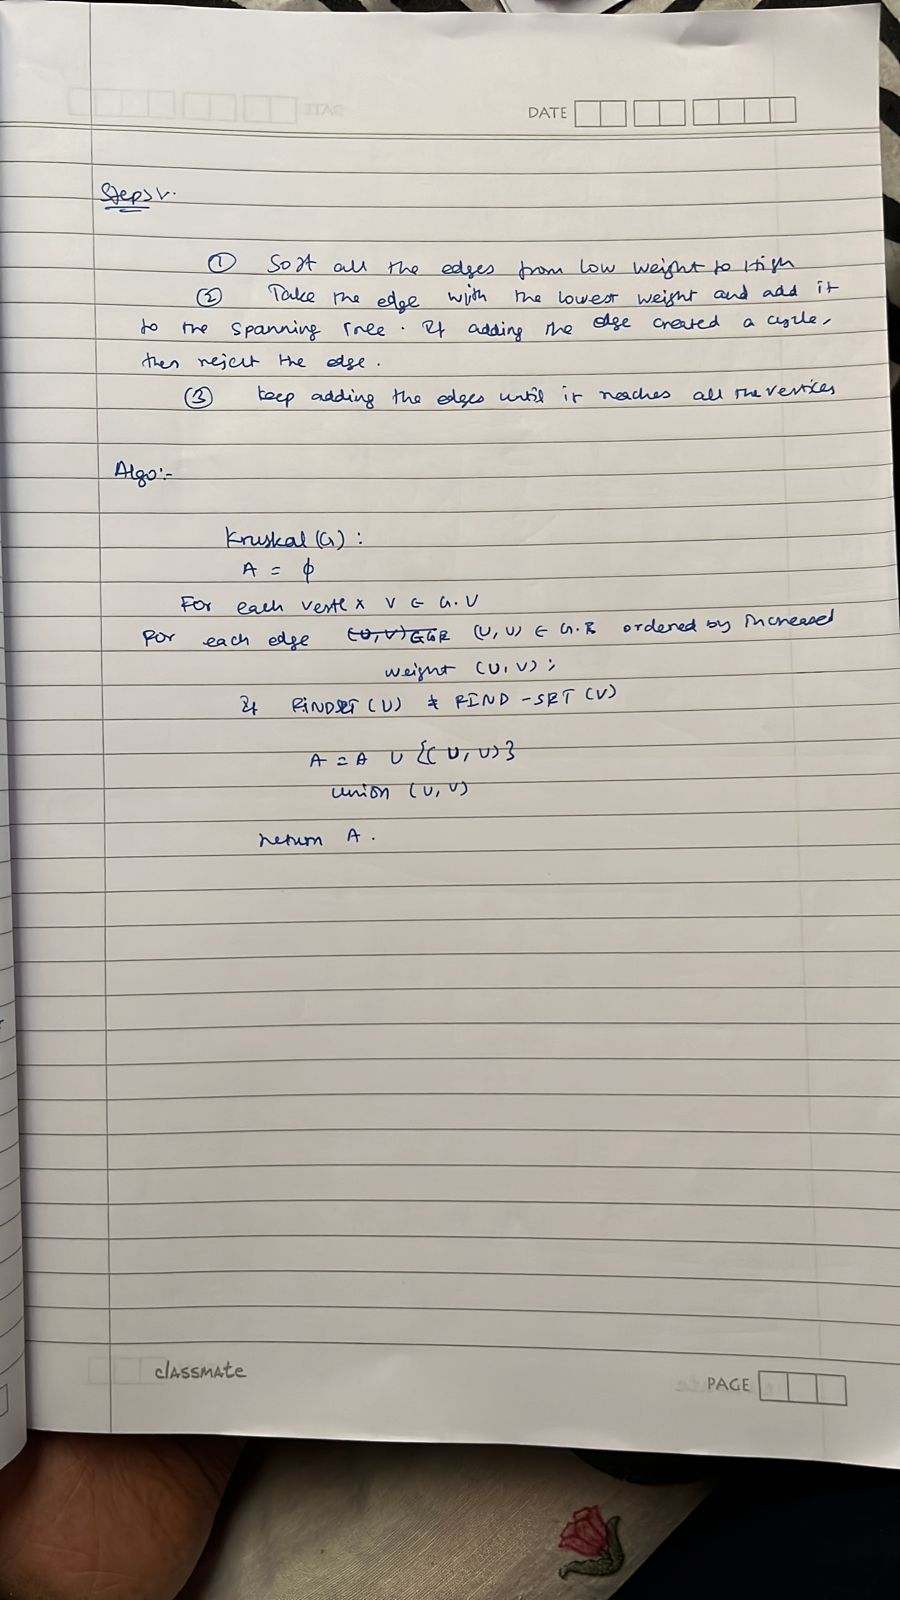 DATE
Steps:-
① Sort all the edges from low weight to High
② Take the edge with the lowest weight and add it
to the spanning Tree. If adding the edge created a cycle,
then reject the edge.
③ keep adding the edges until it reaches all the vertices
Algo:-
Kruskal (G) :
A = ϕ
For each vertex v ∈ G.V
For each edge (U, V) ∈ G.E ordered by increased
weight (U, V);
If FINDSET (U) ≠ FIND-SET (V)
A = A ∪ {(U, V)}
union (U, V)
return A.
classmate
PAGE